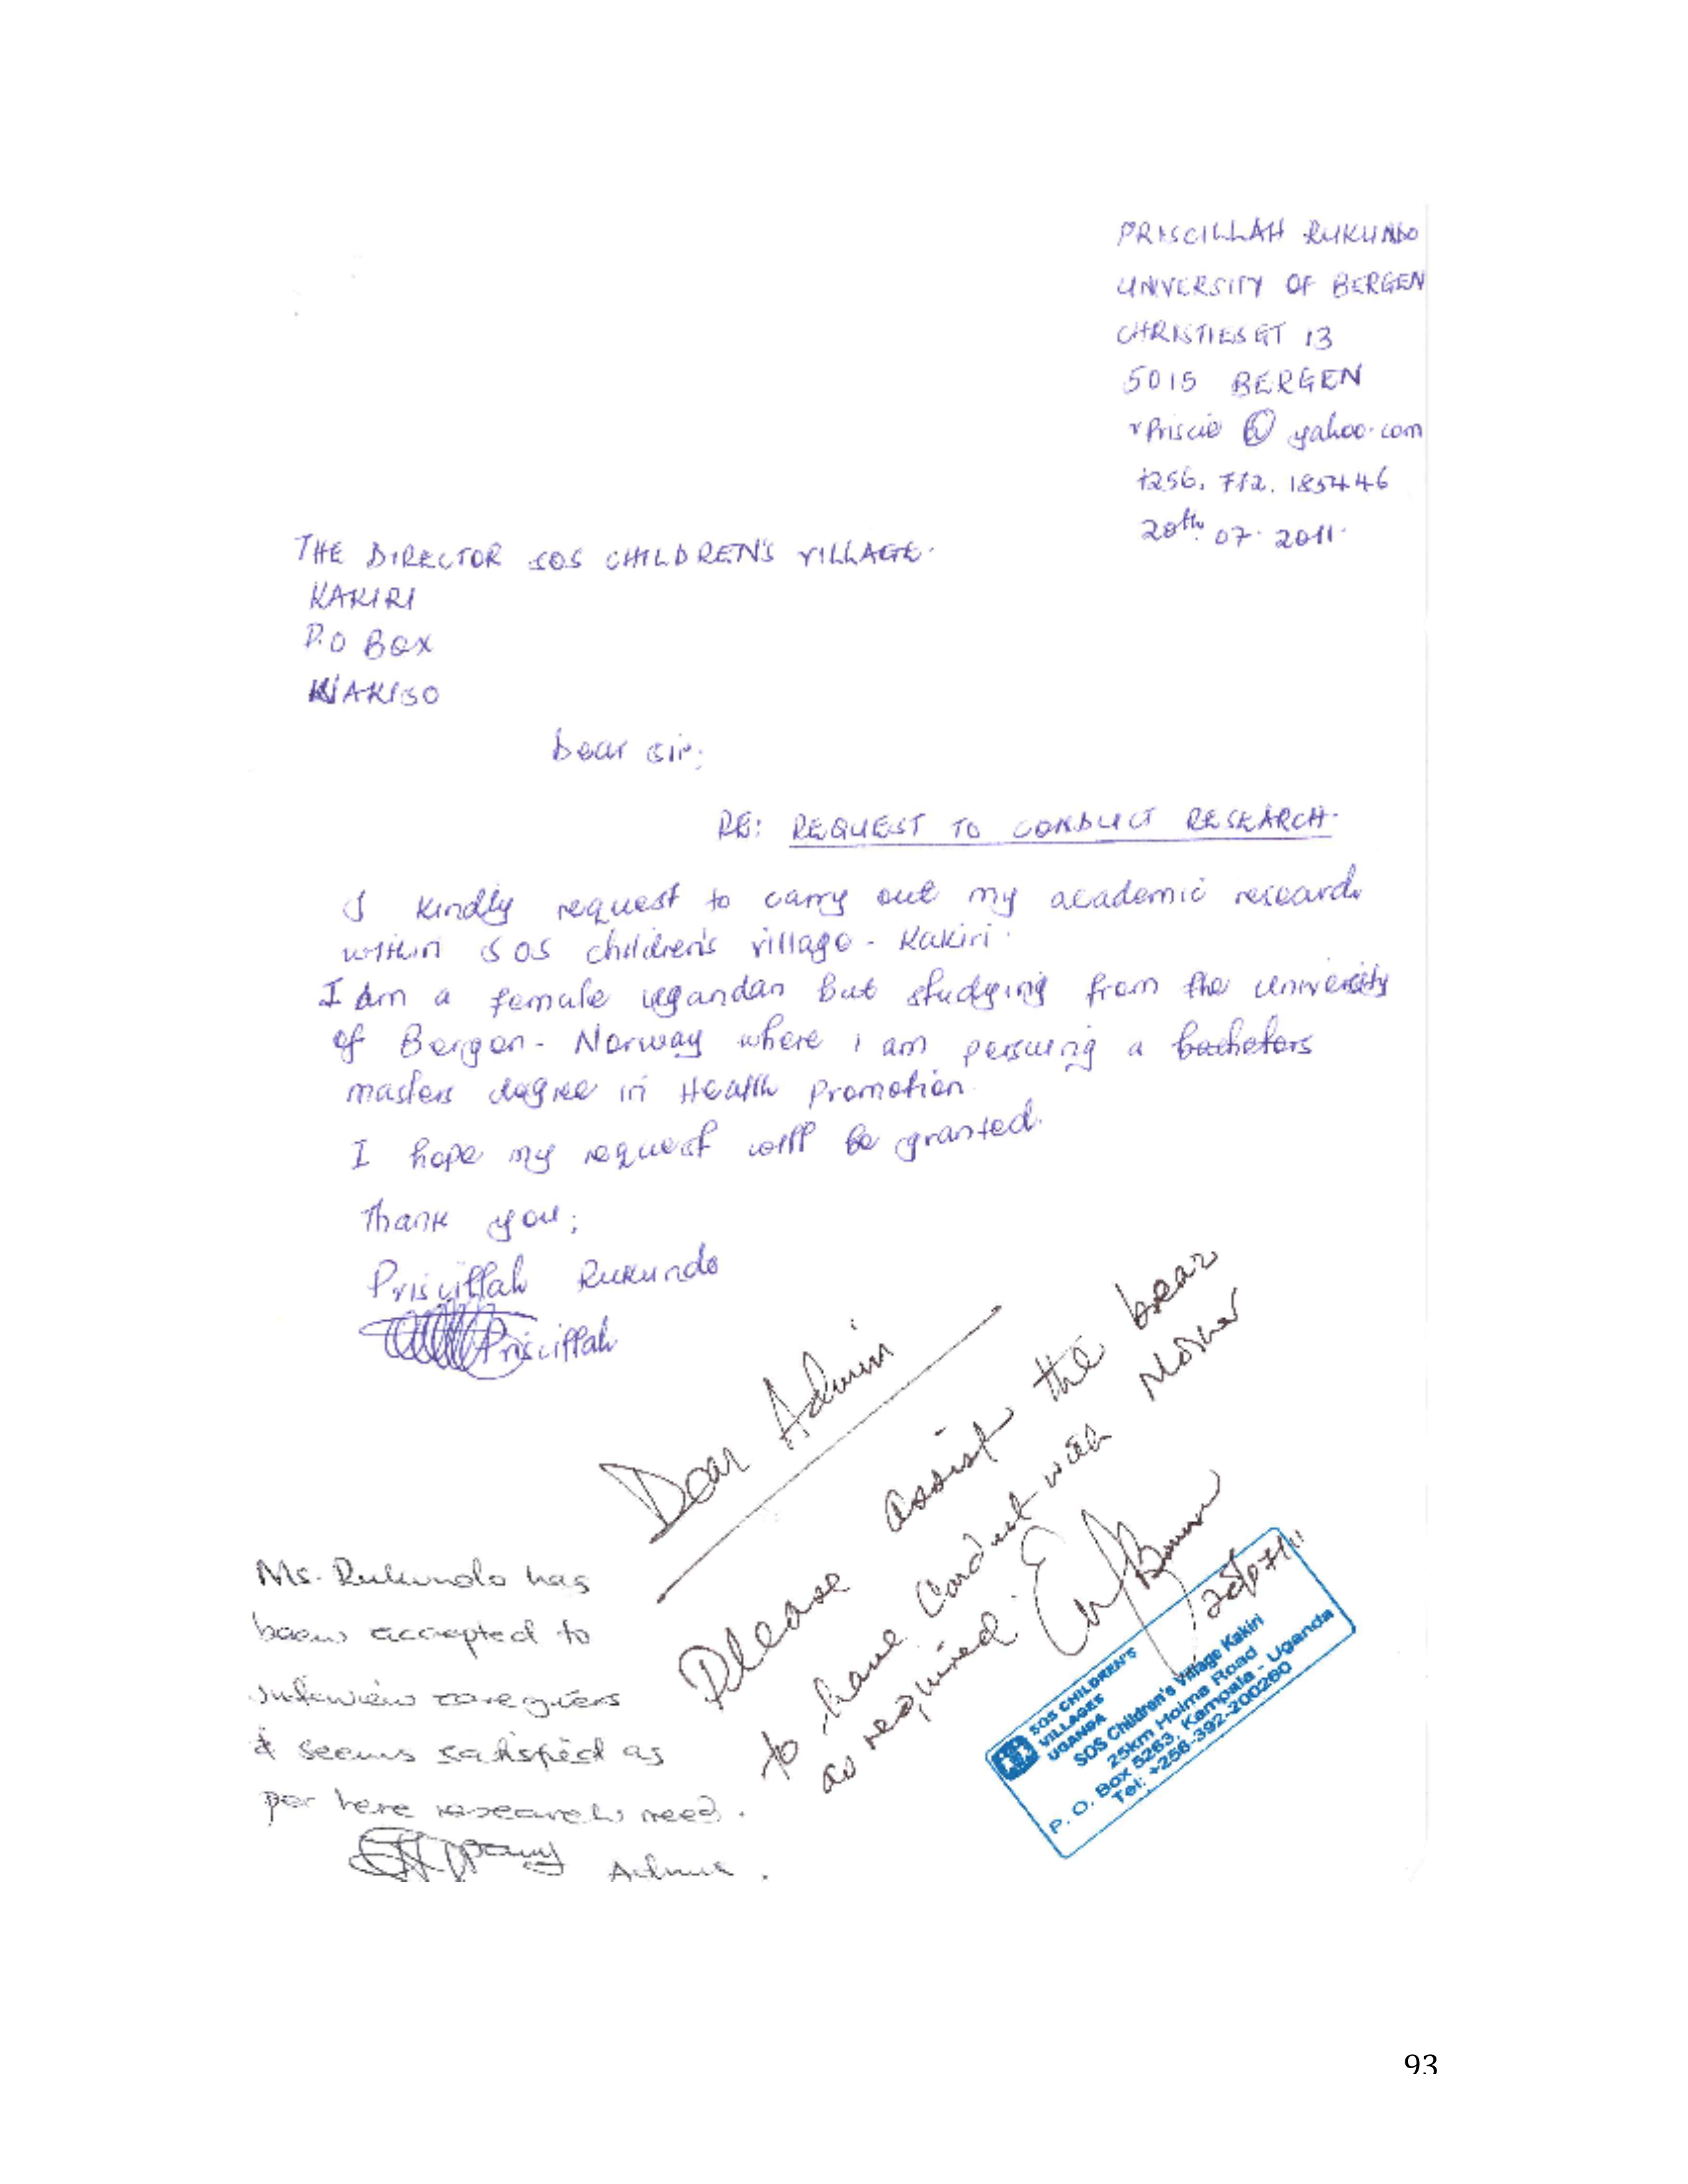 PRISCILLAH RUKUNDO
UNIVERSITY OF BERGEN
CHRISTIES GT 13
5015 BERGEN
rpriscie @ yahoo.com
+256. 712. 185446
20th 07. 2011.
THE DIRECTOR SOS CHILDREN'S VILLAGE.
KAKIRI
P.O BOX
WAKISO
Dear Sir;
RE: REQUEST TO CONDUCT RESEARCH.
I kindly request to carry out my academic research
within SOS children's village - Kakiri.
I am a female ugandan but studying from the University
of Bergen - Norway where i am persuing a bachelors
masters degree in Health promotion.
I hope my request will be granted.
Thank you;
Priscillah Rukundo
Priscillah
Dear Admin
Please assist the bear
to have conduct with Mother
as required.
20/07/11
SOS CHILDREN'S
VILLAGES
UGANDA
SOS Children's Village Kakiri
25km Hoima Road
P. O. Box 5263, Kampala - Uganda
Tel: +256-392-200260
Ms. Rukundo has
been accepted to
interview caregivers
& seems satisfied as
per here research need.
Admin.
93